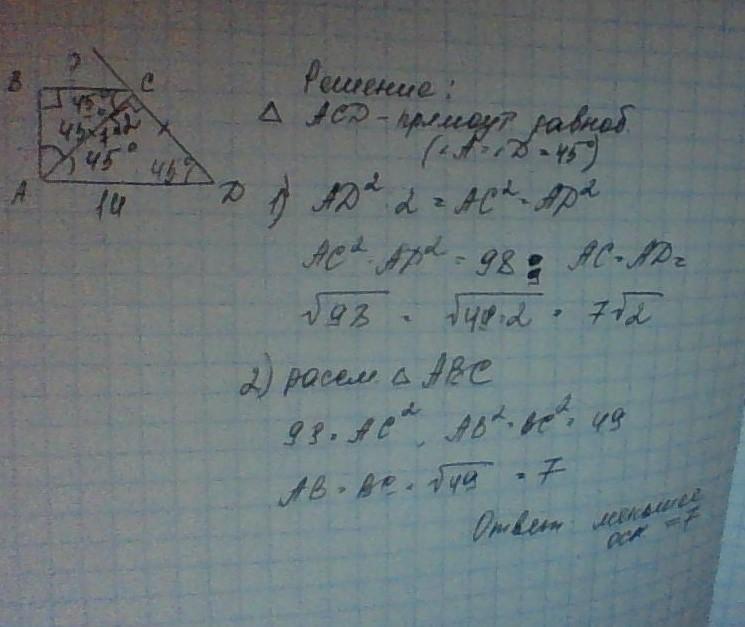 ?
B
C
45°
45°
7√2
45°
45°
A
D
14
Решение:
△ ACD - прямоуг равноб.
(∠A = ∠D = 45°)
1) AD² : 2 = AC² = AD²
AC² = AD² = 98 ; AC = AD =
√98 = √49·2 = 7√2
2) рассм △ ABC
98 = AC², AB² = BC² = 49
AB = BC = √49 = 7
Ответ меньшее
осн = 7